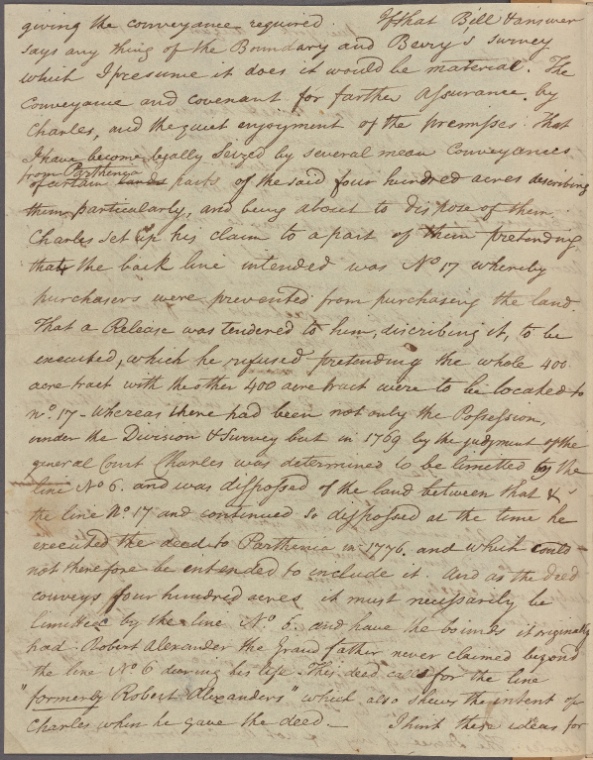 giving the conveyance required. If that Bill & answer
says any thing of the Boundary and Berry's survey
which I presume it does it would be material. The
Conveyance and covenant for farther assurance by
Charles, and the quiet enjoyment of the premisses. That
I have become legally seized by several mean Conveyances
from Parthenia
of certain lands parts of the said four hundred acres describing
them particularly, and being about to dispose of them
Charles set up his claim to a part of them pretending
that the back line intended was No 17 whereby
purchasers were prevented from purchasing the land.
That a Release was tendered to him, discribing it, to be
executed, which he refused pretending the whole 400
acre tract with the other 400 acre tract were to be located to
no. 17 - whereas there had been not only the Possession,
under the Division & Survey but in 1769 by the judgment of the
general Court Charles was determined to be limitted by the
line No 6. and was disposed of the land between that &
the line No. 17 and continued so dispossed at the time he
executed the deed to Parthenia in 1776. and which could
not therefore be intended to include it. And as the deed
conveys four hundred acres it must necessarily be
limitted by the line No 6. and have the bounds it originally
had. Robert Alexander the Grand father never claimed beyond
the line No 6 during his life. This deed calls for the line
"formerly Robert Alexanders" which also shews the intent of
Charles when he gave the deed - I hint these ideas for